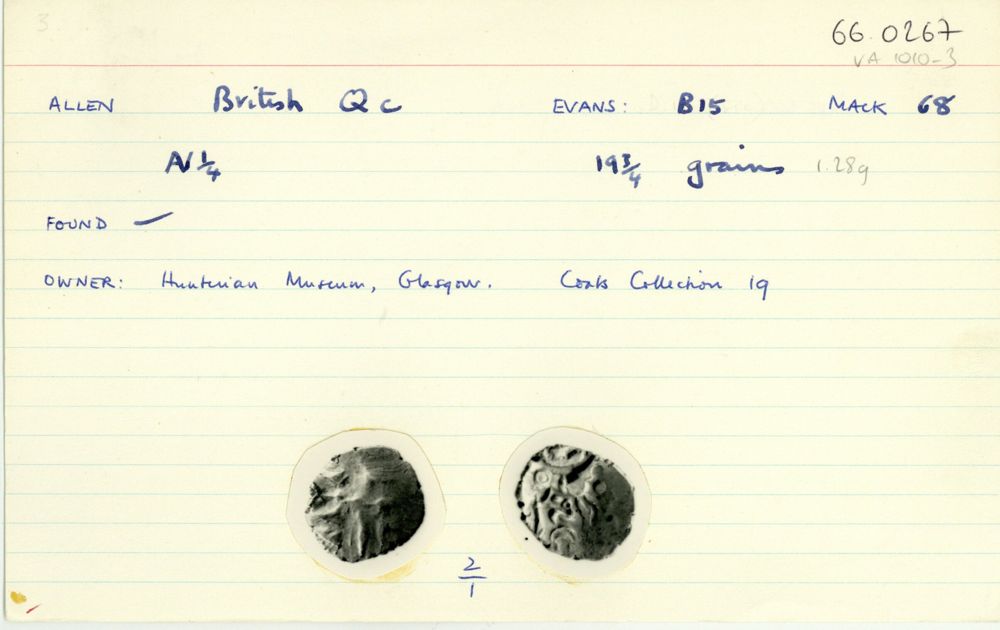 3
66.0267
VA 1010-3
ALLEN British Qc EVANS: B15 MACK 68
AV 1/4 19 3/4 grains 1.28g
FOUND —
OWNER: Hunterian Museum, Glasgow. Coats Collection 19
2/1